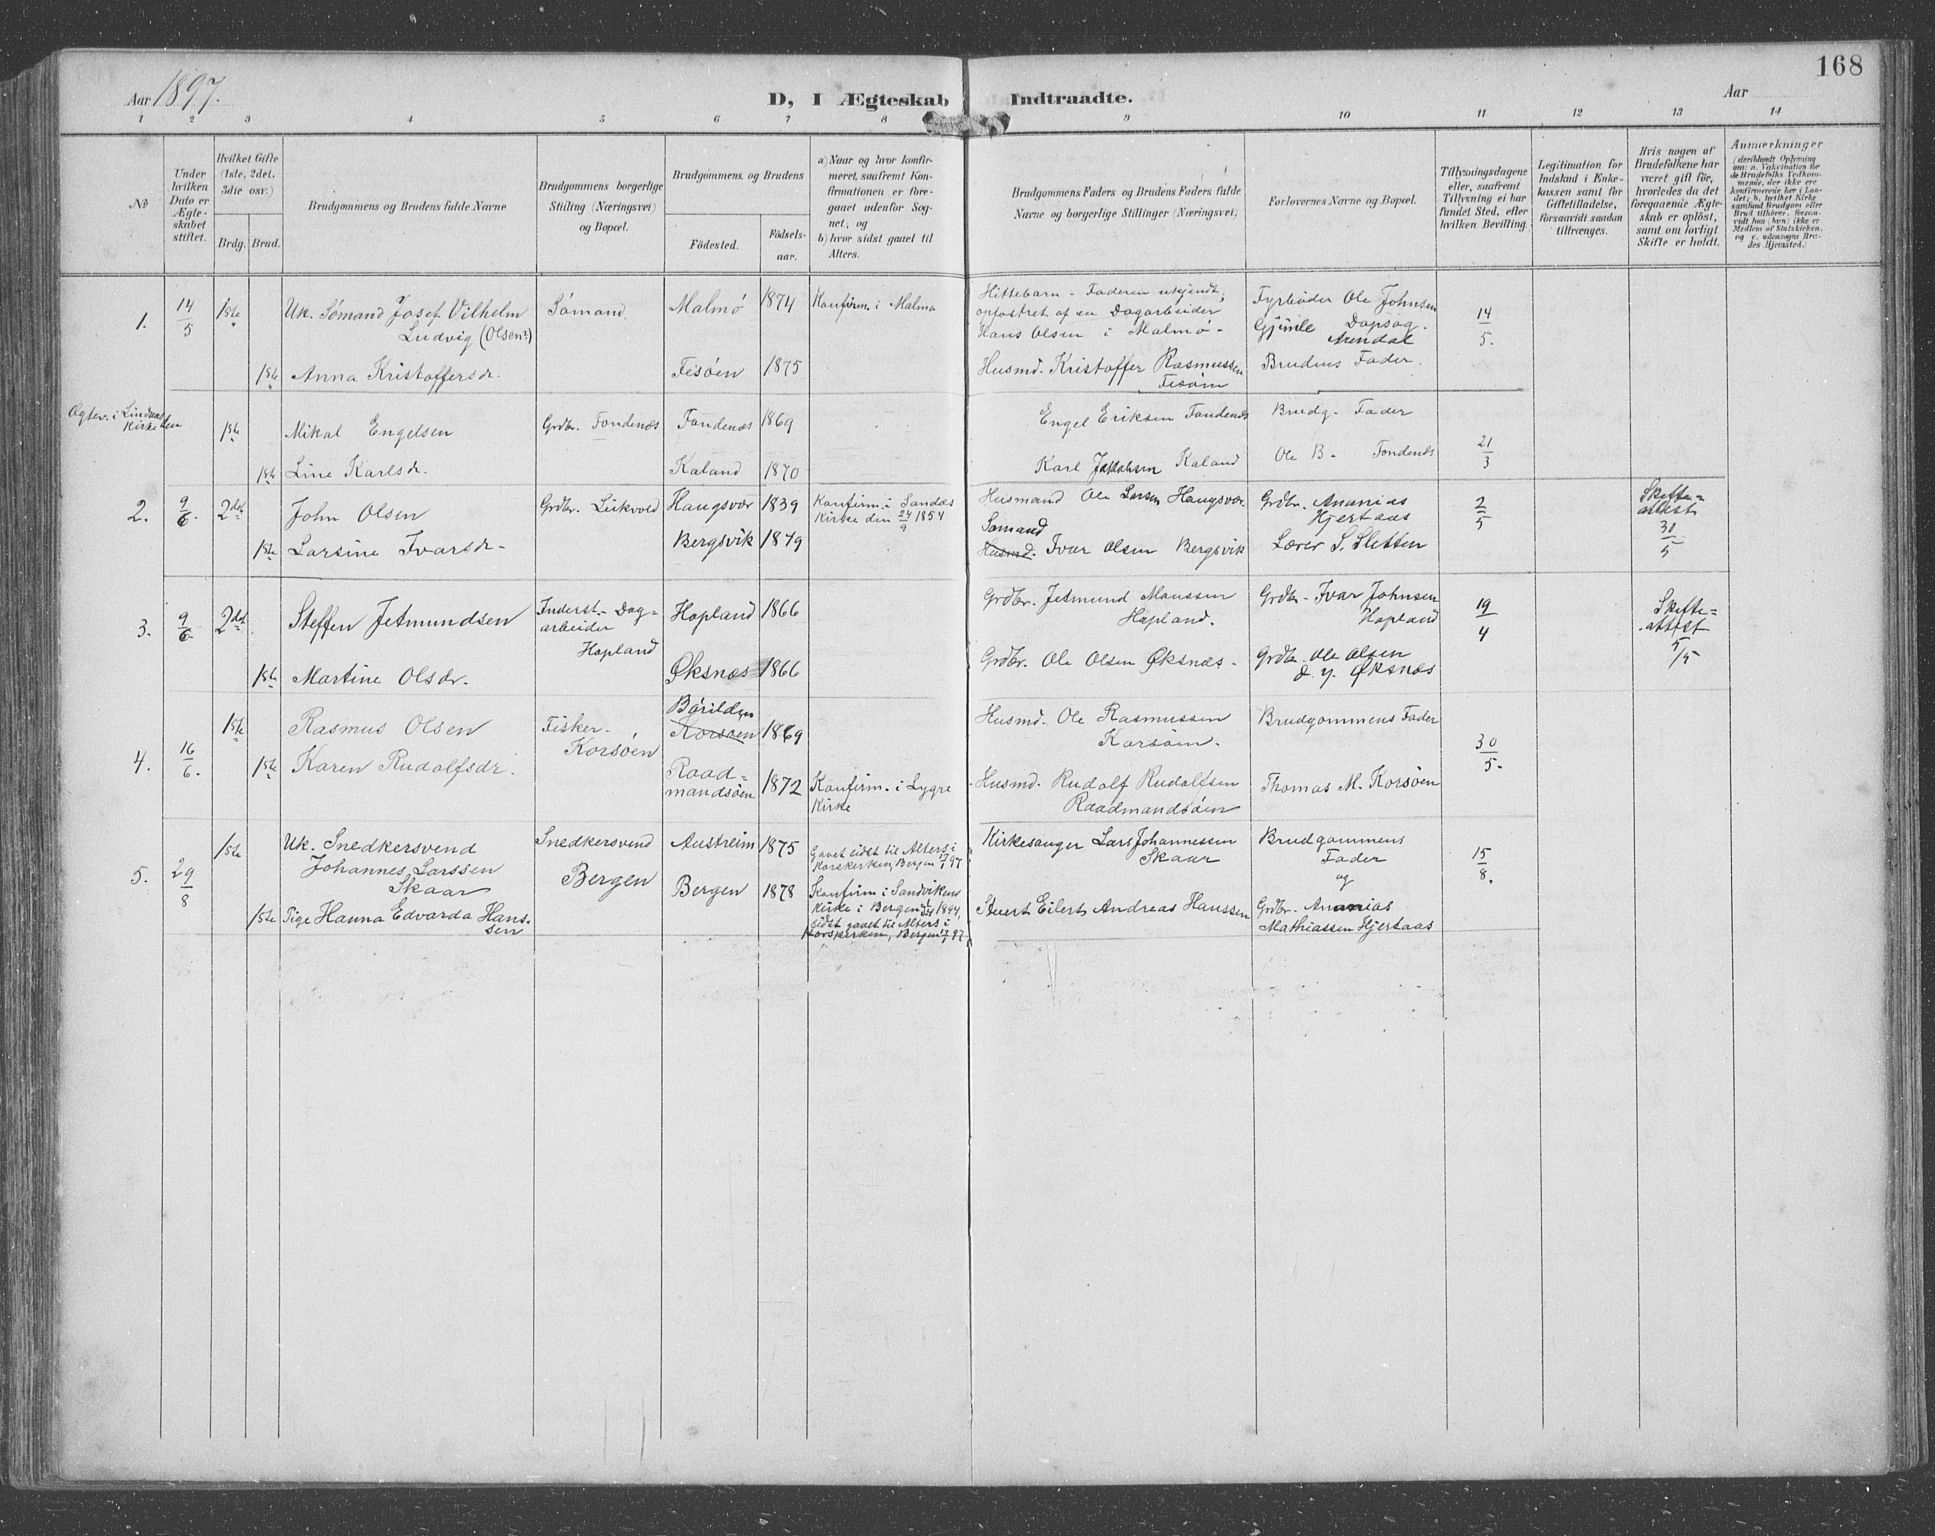 168
Aar 1897.
D, I Ægteskab Indtraadte.
Aar
1 2 3 4 5 6 7 8 9 10 11 12 13 14
No
Under hvilken Dato er Ægteskabet stiftet.
Hvilket Gifte (1ste, 2det, 3die osv.)
Brdg. Brud.
Brudgommens og Brudens fulde Navne
Brudgommens borgerlige Stilling (Næringsvei) og Bopæl.
Brudgommens og Brudens
Födested.
Födsels-aar.
a) Naar og hvor konfirmeret, saafremt Konfirmationen er foregaaet udenfor Sognet; og
b) hvor sidst gaaet til Alters.
Brudgommens Faders og Brudens Faders fulde Navne og borgerlige Stillinger (Næringsvei)
Forlovernes Navne og Bopæl.
Tillysningsdagene eller, saafremt Tillysning ei har fundet Sted, efter hvilken Bevilling.
Legitimation for Indskud i Enkekassen samt for Giftetilladelse, forsaavidt saadan tiltrænges.
Hvis nogen af Brudefolkene har været gift för, hvorledes da det foregaaende Ægteskab er oplöst, samt om lovligt Skifte er holdt.
Anmærkninger
1. 14/5 1ste Uk. Sømand Josef Vilhelm Ludvig (Olsen?) Sømand. Malmø 1874 Konfirm. i Malmø
Hittebarn - Faderen ukjendt, opfostret af en Dagarbeider Hans Olsen i Malmø -
Fyrbøder Ole Johnsen Gjimle Dapsøg. Arendal
14/5.
1ste Anna Kristoffersdr. Fesøen 1875
Husmd. Kristoffer Rasmussen Fesøen
Brudens Fader.
Ogtev. i Lindaas Kirke den
1ste Mikal Engelsen Grdbr. Fondenæs Fondenæs 1869
Engel Eriksen Fondenæs Brudg. Fader
1ste Line Karlsdr. Kaland 1870
Karl Jakobsen Kaland Ole B- Fondenæs 21/3
2. 9/6. 2det John Olsen Grdbr. Leikvold Haugsvær 1839 Konfirm. i Sandøs Kirke den 24/9 1854
Husmand Ole Larsen Haugsvær. Grdbr. Ananias Hjertaas
2/5
Skifte=attest 31/5
1ste Larsine Ivarsdr- Bergsvik 1879
Sømand Husmd. Ivar Olsen Bergsvik Lærer S. Sletten
3. 9/6. 2det Steffen Jetmundsen Inderst - Dagarbeider Hopland Hopland 1866
Grdbr. Jetmund Monssen Hopland. Grdbr. Ivar Johnsen Hopland
19/4
Skifte=attest 5/5
1ste Martine Olsdr. Øksnæs 1866
Grdbr. Ole Olsen Øksnæs - Grdbr. Ole Olsen d. y. Øksnæs
4. 16/6. 1ste Rasmus Olsen Fisker. Korsøen Børildøen Korsøen 1869
Husmd. Ole Rasmussen Korsøen. Brudgommens Fader
30/5.
1ste Karen Rudolfsdr. Raadmandsøen 1872 Konfirm. i Lygre Kirke
Husmd. Rudolf Rudolfsen Raadmandsøen Thomas M. Korsøen
5. 29/8 1ste Uk. Snedkersvend Johannes Larssen Skaar Snedkersvend Bergen Austreim 1875 Gaaet sidst til Alters i Korskirken, Bergen 97
Kirkesanger Lars Johannessen Skaar Brudgommens Fader og
15/8.
1ste Pige Hanna Edvarda Hanssen Bergen 1878 Konfirm i Sandvikens Kirke i Bergen 1894, sidst gaaet til Alters i Korskirken, Bergen 97
Stuert Eilert Andreas Hanssen Grdbr. Ananias Mathiassen Hjertaas